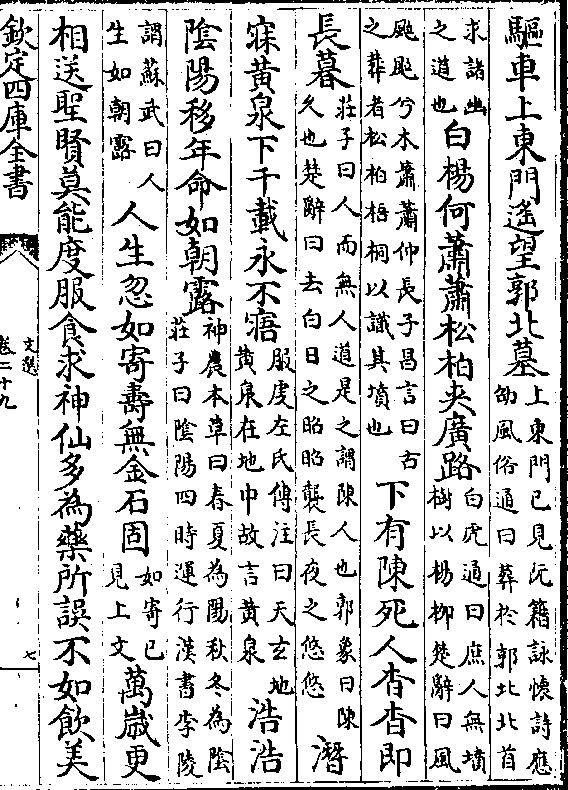 驅車上東門遙望郭北墓上東門已見阮籍詠懷詩應劭風俗通曰葬於郭北北首
求諸幽之道也白楊何蕭蕭松柏夾廣路白虎通曰庶人無墳樹以楊柳楚辭曰風
颫颫兮木蕭蕭仲長子昌言曰古之葬者松柏梧桐以識其墳也下有陳死人杳杳即
長暮莊子曰人而無人道是之謂陳人也郭象曰陳久也楚辭曰去白日之昭昭襲長夜之悠悠潛
寐黃泉下千載永不寤服虔左氏傳注曰天玄地黃泉在地中故言黃泉浩浩
陰陽移年命如朝露神農本草曰春夏為陽秋冬為陰莊子曰陰陽四時運行漢書李陵
謂蘇武曰人生如朝露人生忽如寄壽無金石固如寄已見上文萬嵗更
相送聖賢莫能度服食求神仙多為藥所誤不如飲美
欽定四庫全書
文選
卷二十九
七